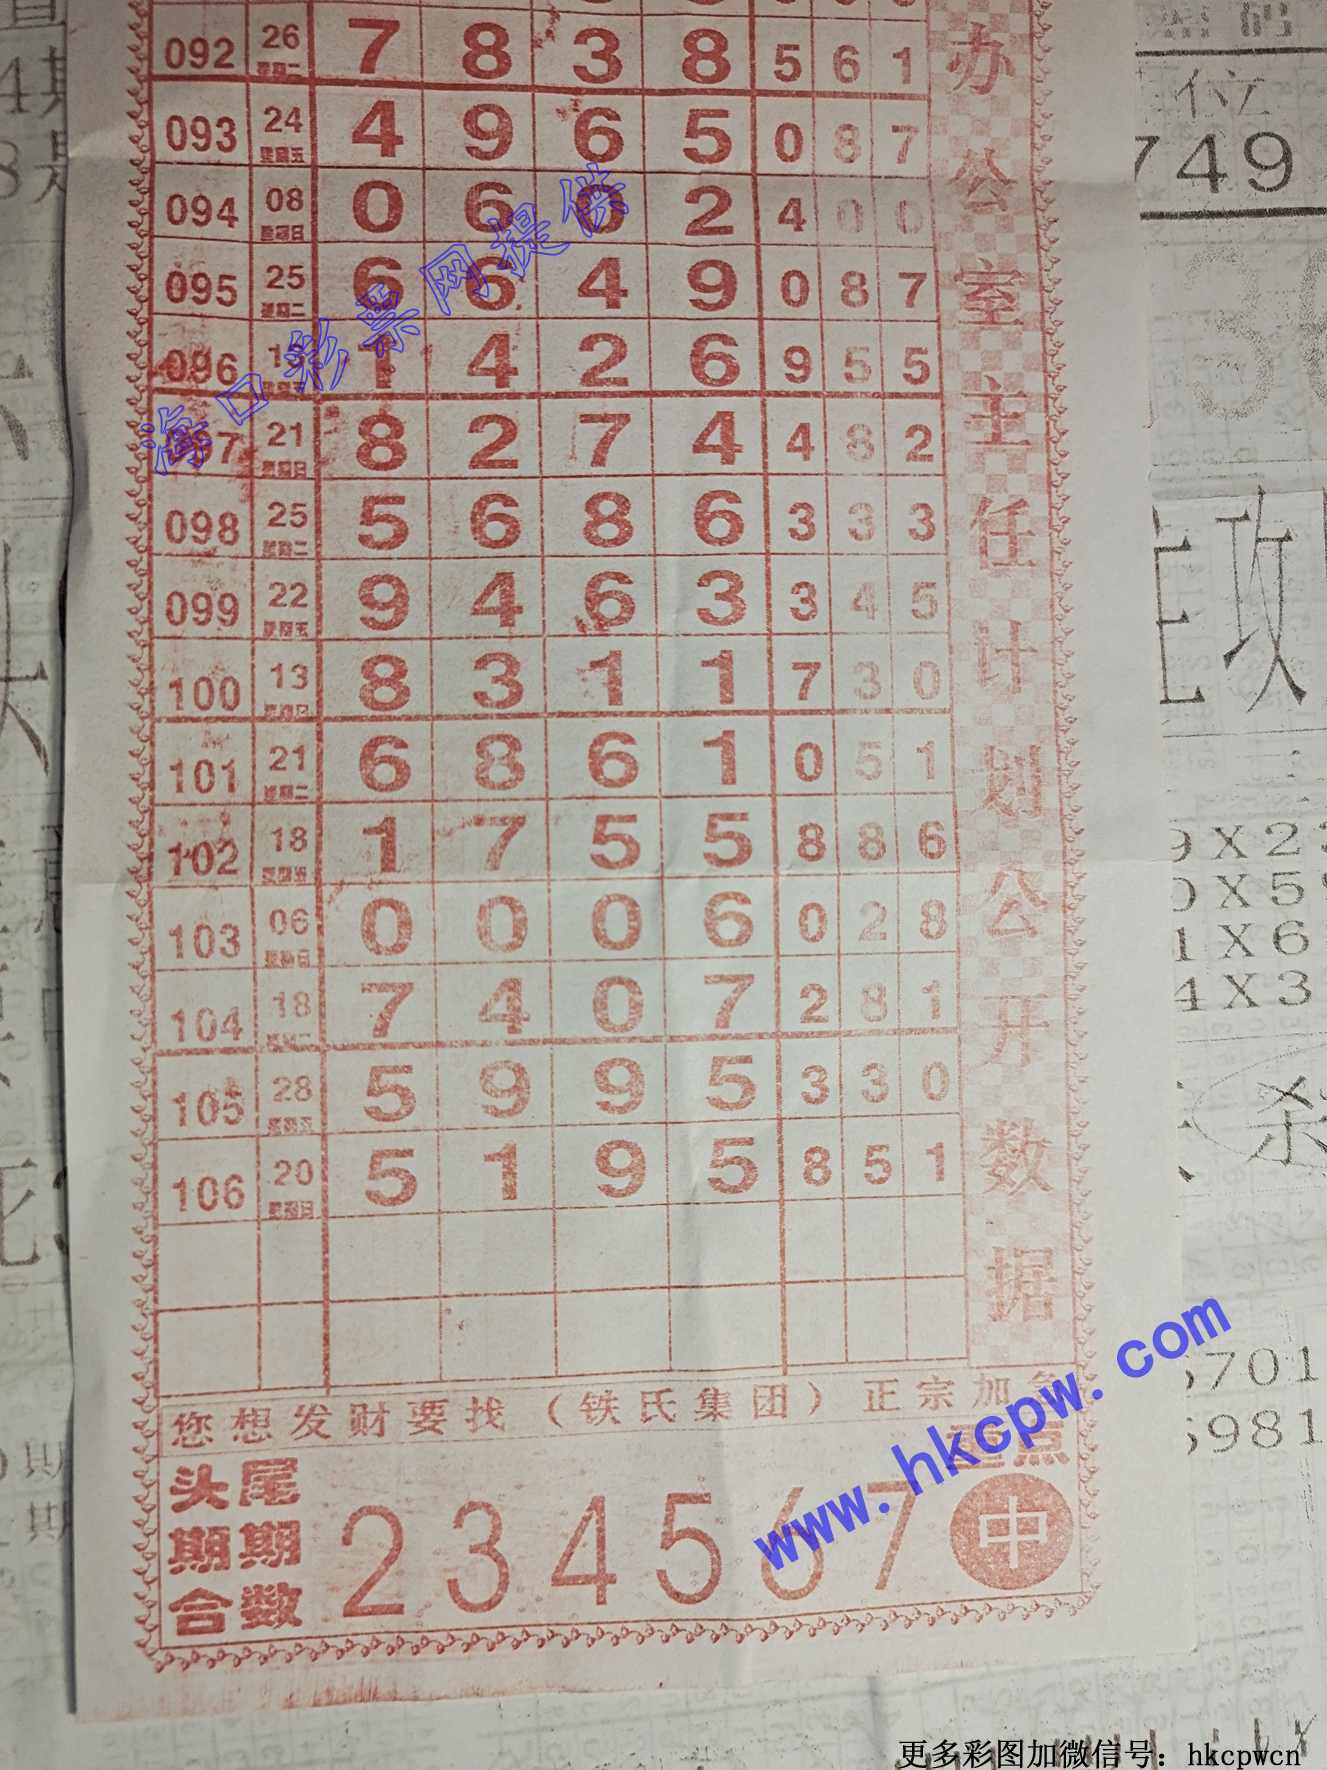 092 26 7 8 3 8 5 6 1
093 24 星期五 4 9 6 5 0 8 7
094 08 星期日 0 6 0 2 4 0 0
095 25 星期二 6 6 4 9 0 8 7
096 星期五 1 4 2 6 9 5 5
097 21 星期日 8 2 7 4 4 8 2
098 25 星期二 5 6 8 6 3 3 3
099 22 星期五 9 4 6 3 3 4 5
100 13 星期日 8 3 1 1 7 3 0
101 21 星期二 6 8 6 1 0 5 1
102 18 星期五 1 7 5 5 8 8 6
103 06 星期日 0 0 0 6 0 2 8
104 18 星期二 7 4 0 7 2 8 1
105 28 星期五 5 9 9 5 3 3 0
106 20 星期日 5 1 9 5 8 5 1
办公室主任计划公开数据
海口彩票网提供
您想发财要找（铁氏集团）正宗加
头尾
期期
合数
2 3 4 5 6 7
重点
中
www.hkcpw.com
位
749
攻
9X2
0X5
1X6
4X3
杀
701
981
更多彩图加微信号：hkcpwcn